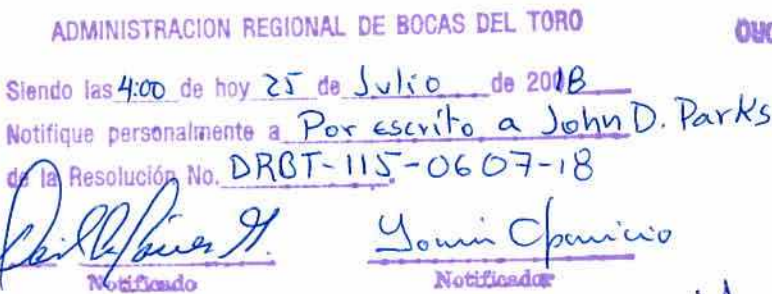 ADMINISTRACION REGIONAL DE BOCAS DEL TORO
Siendo las 4:00 de hoy 25 de Julio de 2018
Notifique personalmente a Por escrito a John D. Parks
de la Resolución No. DRBT-115-0607-18
Notificado Notificador